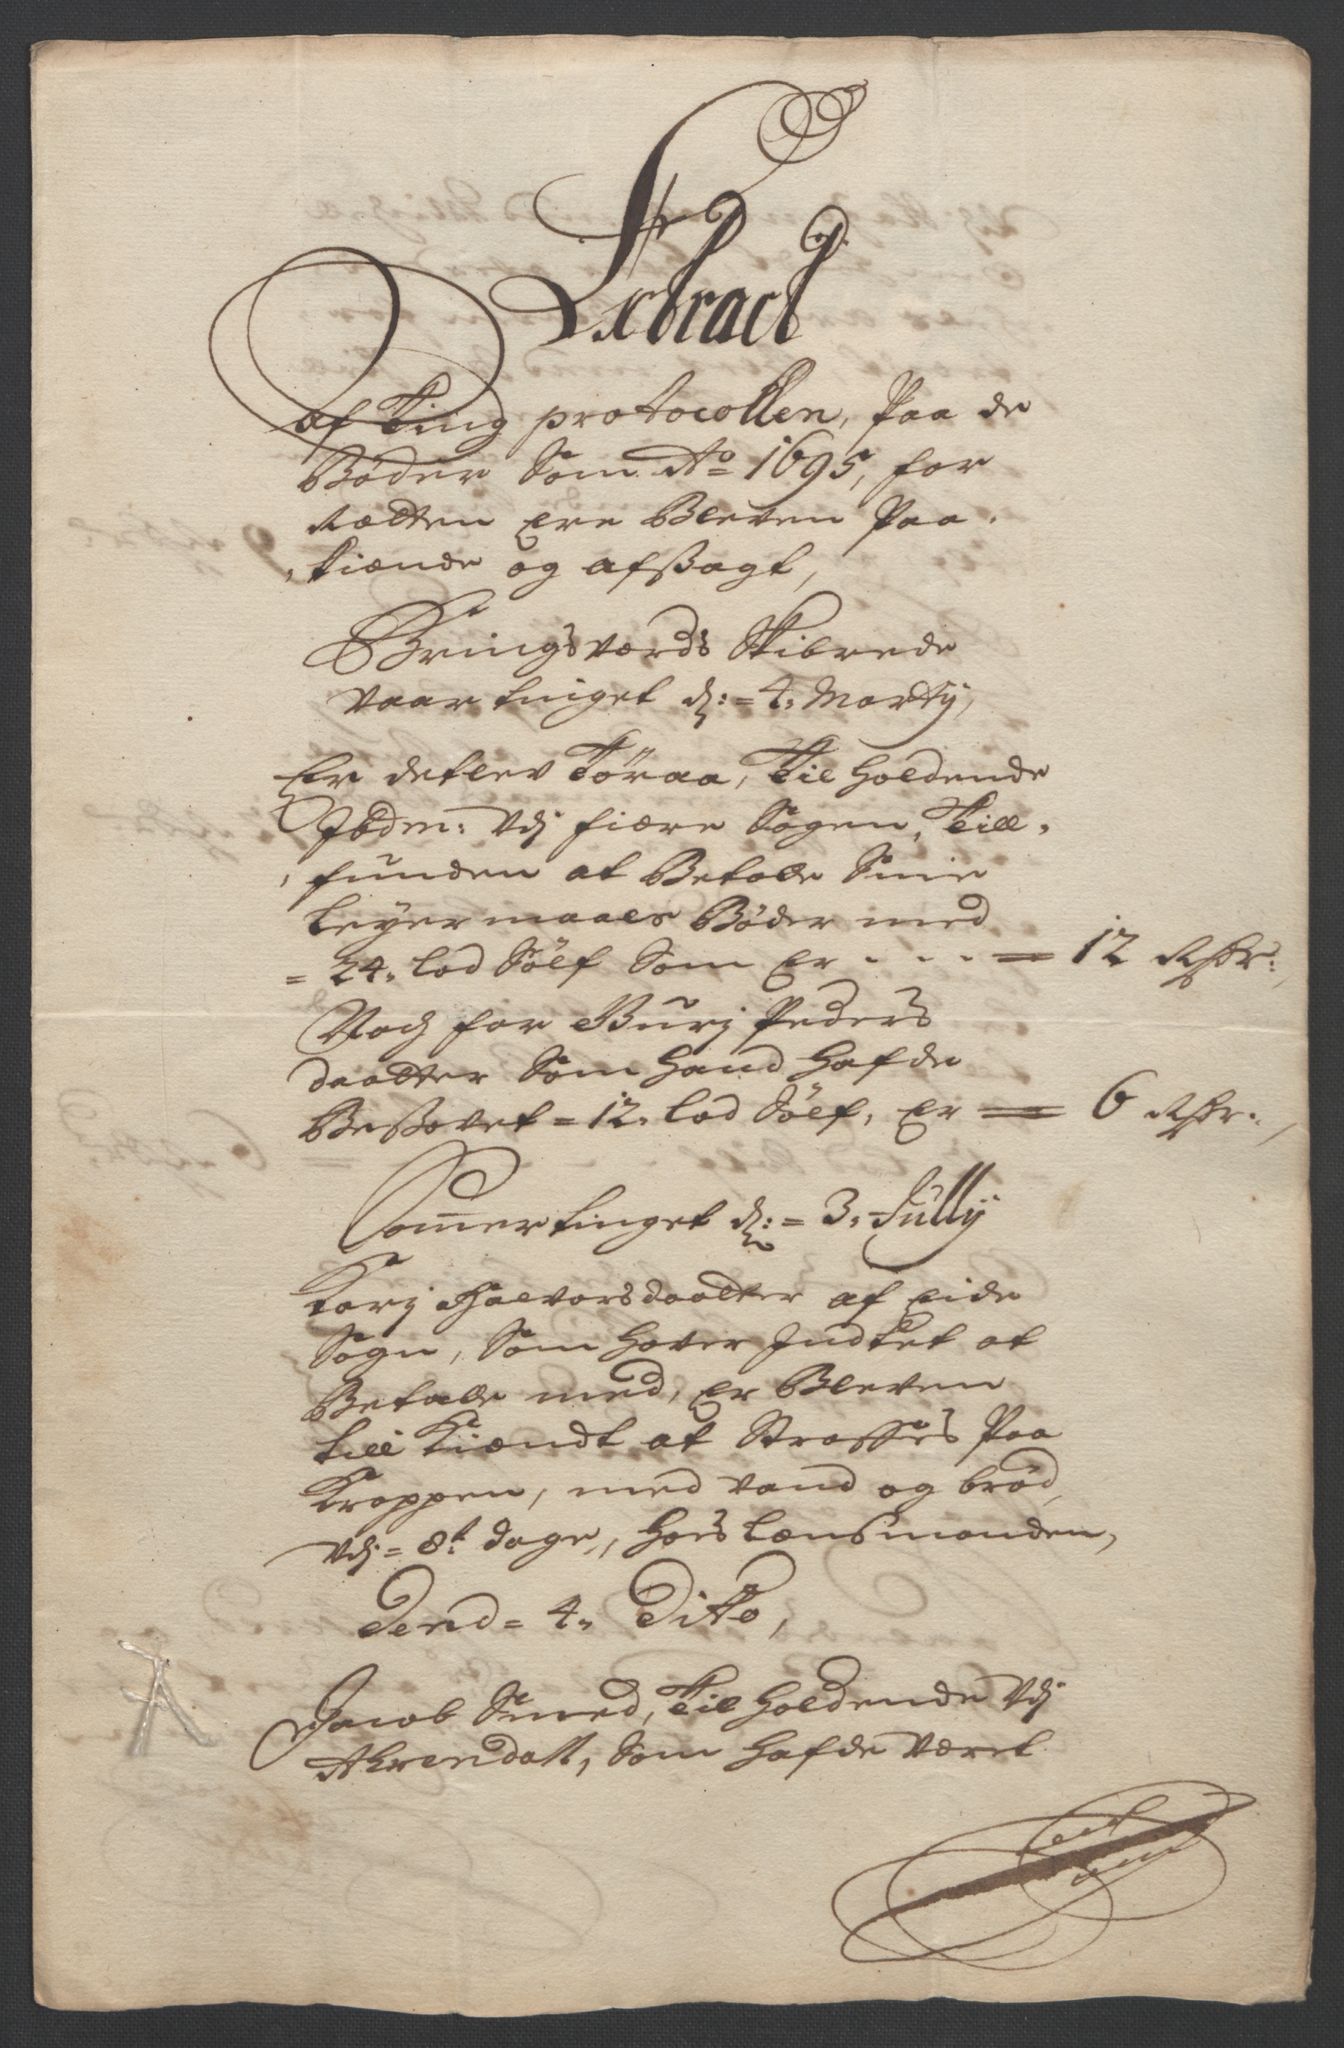 Extract
af Ting protocollen, Paa de
Bøder Som Ao 1695, for
Rætten Ere Bleven Paa
kiænde og afsagt,
Bringsværds Skibrede
vaar tinget d: 4. Marty,
Er detlev Töraa, Til holdende
Ibdm: Vdj fiære Sogen, Till
funden at Betalle Sine
Leyermaals Bøder med
24. lod Sölf Som Er - - - 12 Rdr:
Noch for Burj Peders
daatter Som hand hafde
Besovet 12. lod Sölf, Er 6 Rdr:
Sommertinget d: 3. Jully
Karj Halvorsdaatter af Eide
Sogn, Som haver Indtet at
Betalle med, Er Bleven
till Kiændt at Straffes Paa
Kroppen, med vand og brød,
Vdj 8t dage, hos lænsmanden,
Dend 4. Dito,
Jacob Smed, Til holdende Vdj
Ahrendall, Som hafde Været